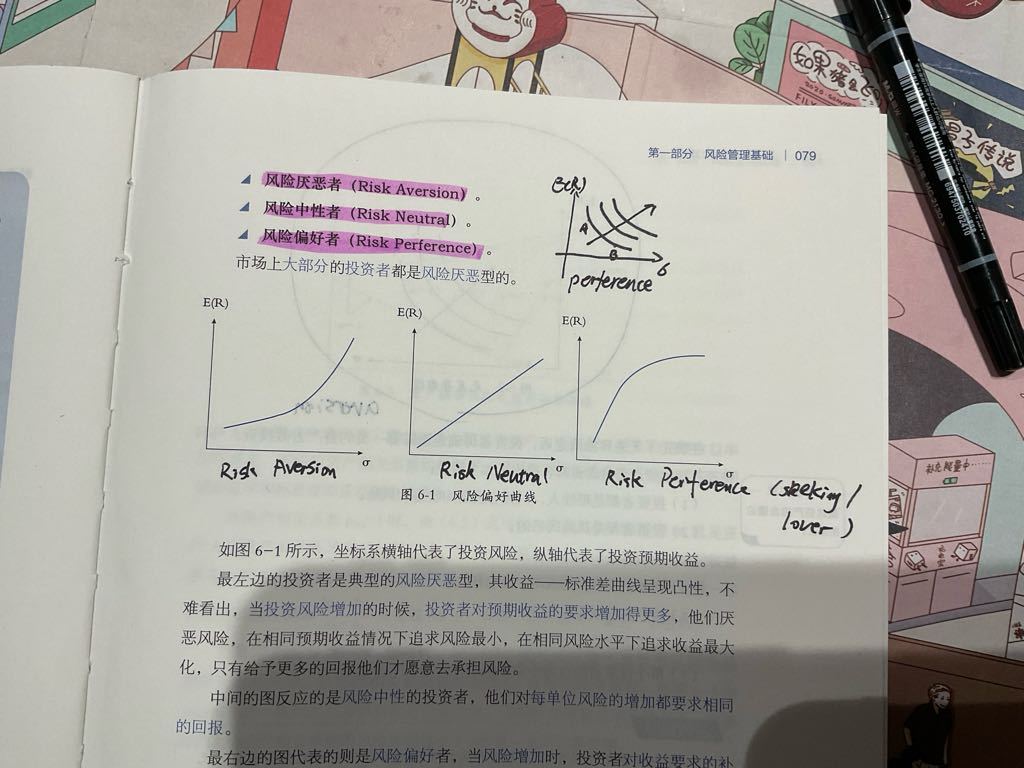 第一部分 风险管理基础 | 079
风险厌恶者（Risk Aversion）。
风险中性者（Risk Neutral）。
风险偏好者（Risk Perference）。
市场上大部分的投资者都是风险厌恶型的。
E(R)
A
B
σ
perference
E(R)
E(R)
E(R)
σ
σ
σ
Risk Aversion
Risk Neutral
Risk Perference (seeking/
lover)
图 6-1 风险偏好曲线
如图 6-1 所示，坐标系横轴代表了投资风险，纵轴代表了投资预期收益。
最左边的投资者是典型的风险厌恶型，其收益——标准差曲线呈现凸性，不
难看出，当投资风险增加的时候，投资者对预期收益的要求增加得更多，他们厌
恶风险，在相同预期收益情况下追求风险最小，在相同风险水平下追求收益最大
化，只有给予更多的回报他们才愿意去承担风险。
中间的图反应的是风险中性的投资者，他们对每单位风险的增加都要求相同
的回报。
最右边的图代表的则是风险偏好者，当风险增加时，投资者对收益要求的补
如果糖里会
冒子传说
补充能量中
6947503702410